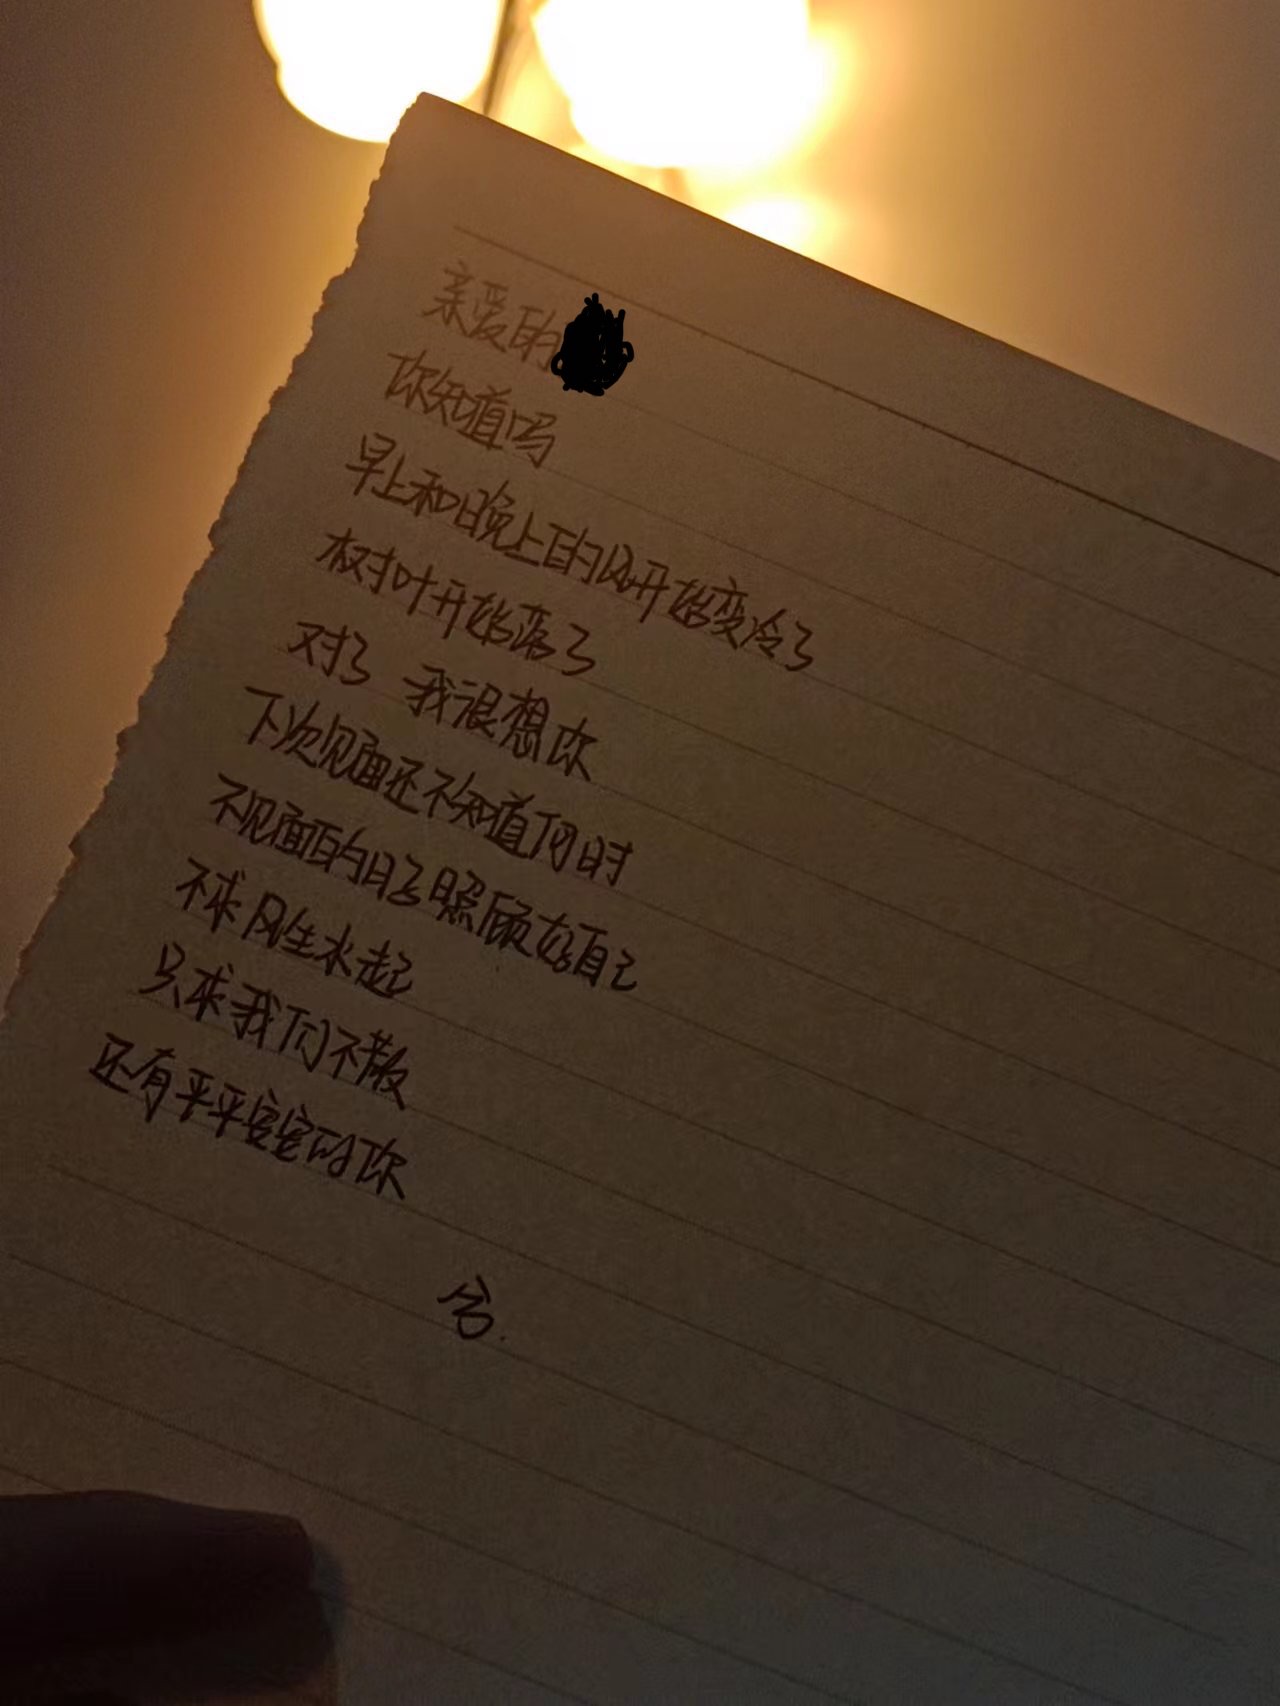 亲爱的
你知道吗
早上和晚上的风开始变冷了
树叶开始落了
对了 我很想你
下次见面还不知道何时
不见面的日子照顾好自己
不求风生水起
只求我们不散
还有平平安安的你